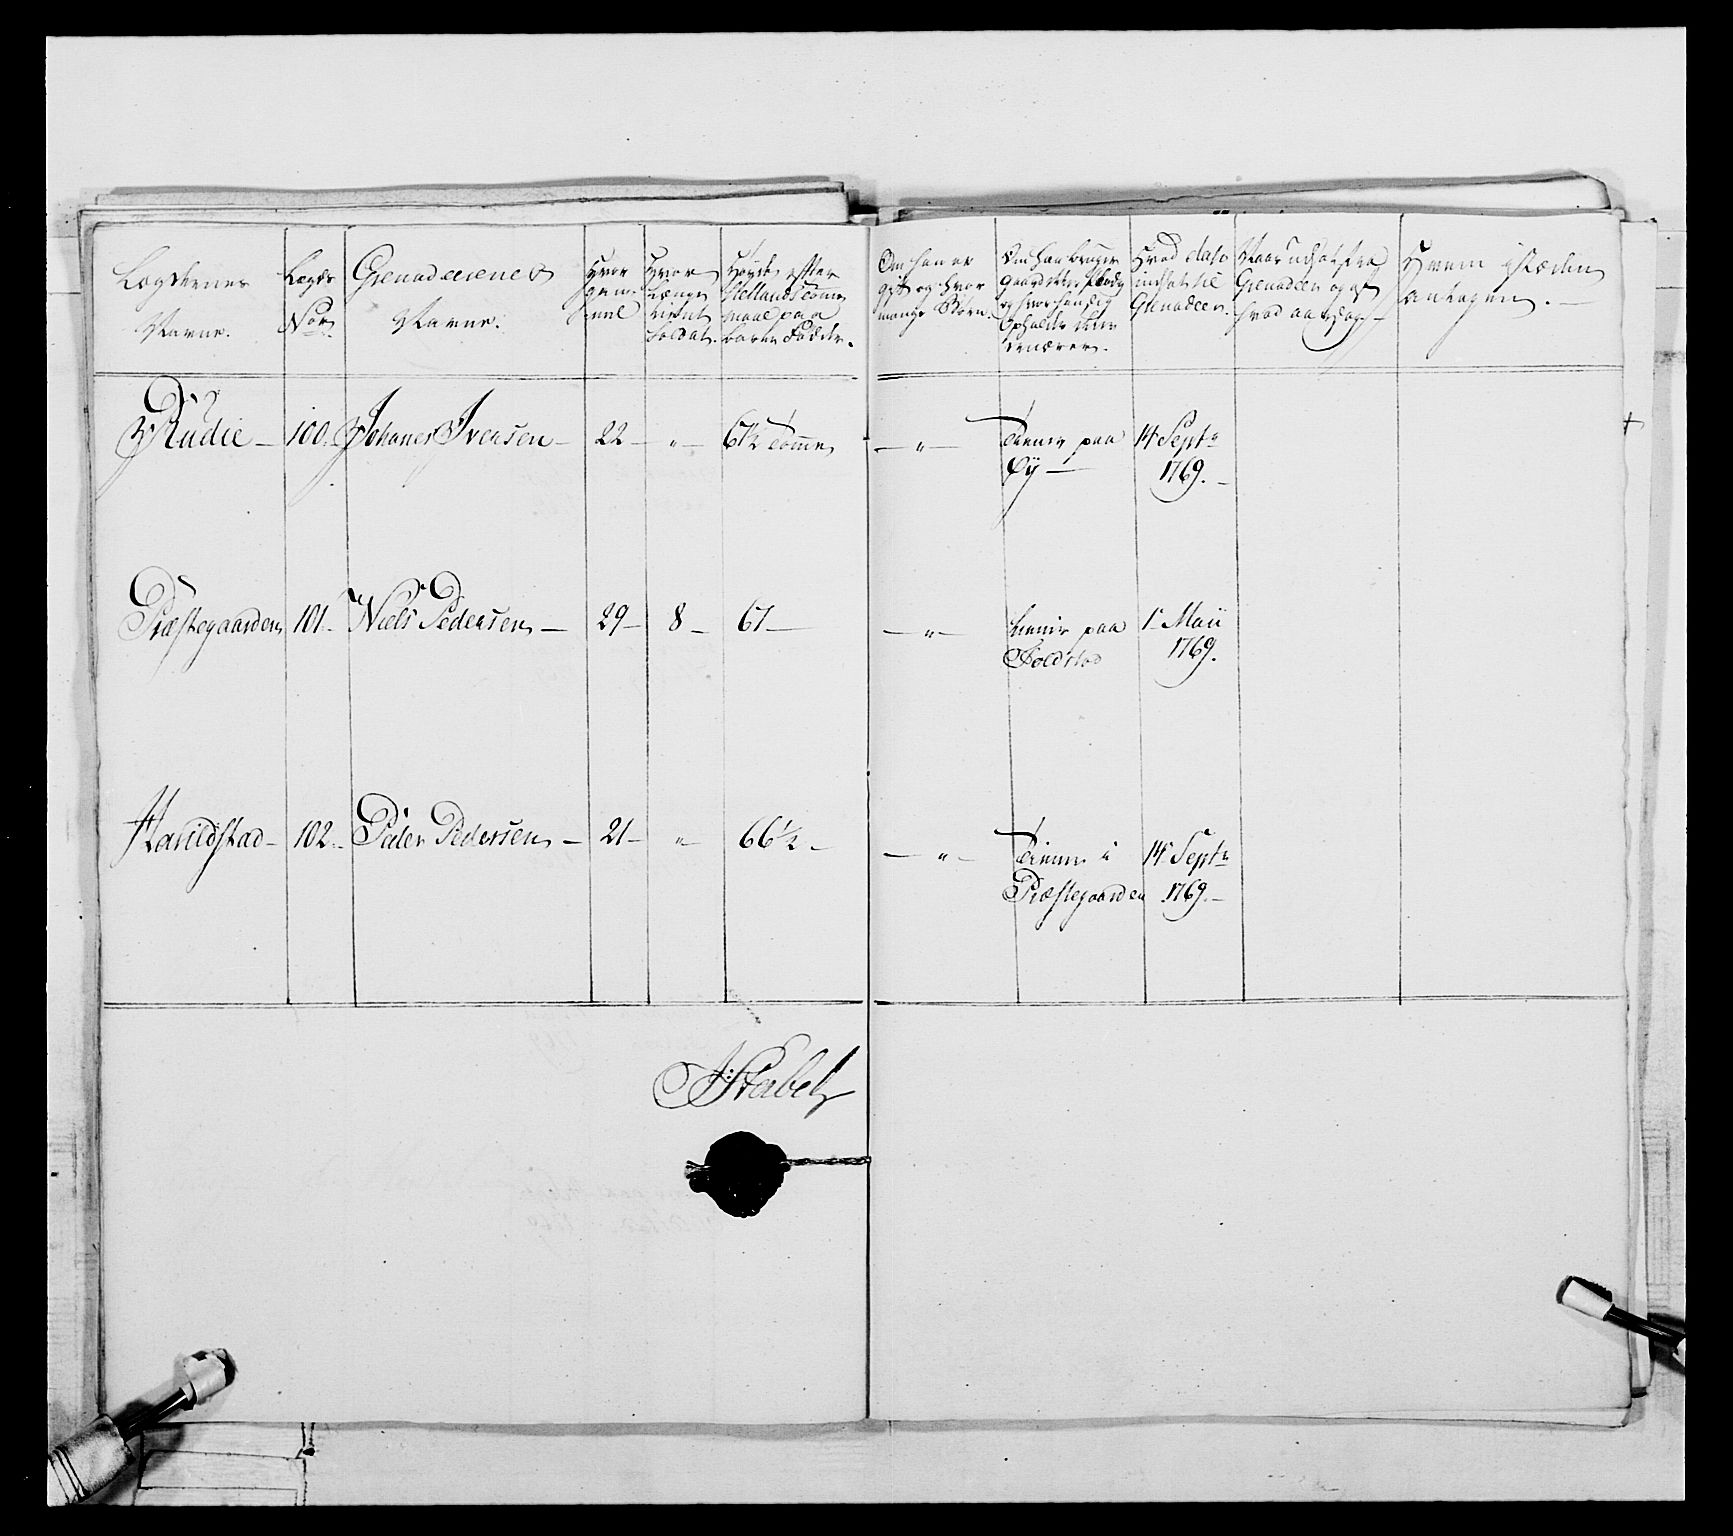 Lægdernes
Navne.
Lægds
No
Grenadeerenes
Navne.
Hvor
gam-
mel
Hvor
længe
tient
Soldat.
Høyde efter
Sællands Tomme
maal paa
bare Fødder.
Om han er
gift og hvor
mange Børn.
Om han bruger
Gaard eller Plads
og hvor han sig
opholder eller
ernærer.
Hvad dato
indsat til
Grenadeer.
Naar udsat fra
Grenadeer og af
hvad aarsag
Hvem i stæden
antagen.
Rudie — 100. Johanes Iversen — 22 — " — 67½ Tomme — " — Tiener paa 14 Septr
Øy — 1769.
Præstegaarden 101. Niels Pedersen — 29 — 8 — 67 — — " — tiener paa 1 Maii
Foldstad 1769.
Harildstad — 102. Peder Pedersen — 21 — " — 66½ — — " — Tiener i 14 Septr
Præstegaarden 1769. —
Stabell